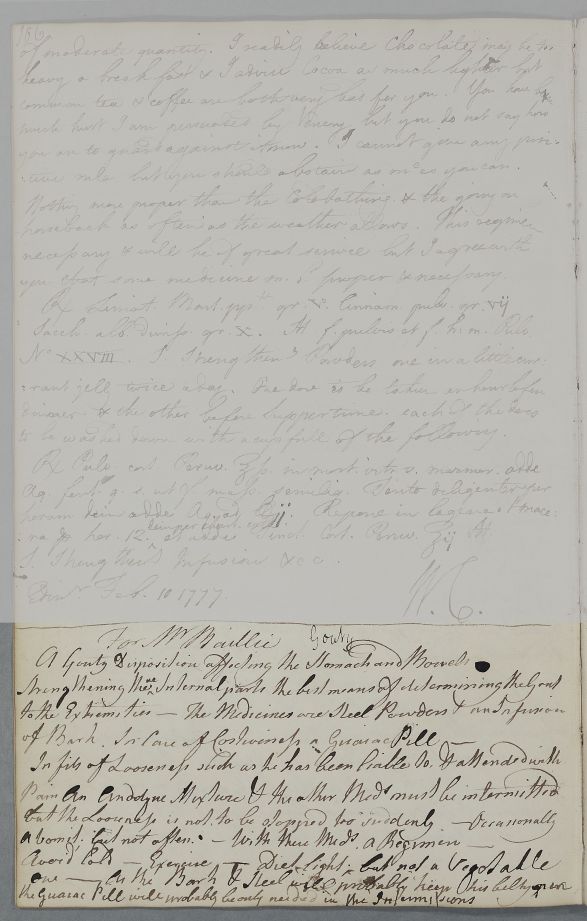 186
of moderate quantity. I readily believe Chocolate may be too
heavy a breakfast & I advise Cocoa as much lighter but
common tea & coffee are both very bad for you. You have been
much hurt I am persuaded by Venery but you do not say how
you are to guard against it now. I cannot give any posi-
tive rule but you should abstain as much as you can.
Nothing more proper than the Coldbathing & the going on
horseback as often as the weather allows. This regimen
necessary & will be of great service but I agree with
you that some medicine is proper & necessary.
Rx Limat. Mart. ppt gr. v. Cinnam. pulv. gr. vij
Sacch. alb. gr. X. M. f. pulvis et f. h. m. Pulv.
No XXVIII. S. Strengthens Powders one in a little cur-
rant jelly twice a day. One dose to be taken an hour before
dinner & the other before supper time. each of the doses
to be washed down with a cupfull of the following.
Rx Pulv. cort. Peruv. in mort. vitr. s. marmor. adde
Aq. font. q. s. ut f. massa. Terito diligenter per
horam dein adde Aquae Repone in lagena & mace-
ra hor. 12. et adde Tinct. Cort. Peruv. ℥ij M.
S. Strengthens Infusion &c c.
Edinr. Feb. 10 1777. W. C.
For Mr Baillie Gouty
A Gouty Disposition affecting the Stomach and Bowels
strengthening these Internal parts the best means of determining the Gout
to the Extremities — The Medicines are Steel Powders & an Infusion
of Bark. In Case of Costiveness a Guaiac Pill —
In fits of Looseness such as he has been liable to & attended with
Pain An Anodyne Mixture & the other Meds must be intermitted
but the Looseness is not to be stopped too suddenly — Occasionally
a vomit: but not often. — With these Meds. a Regimen —
Avoid Cold — Exercise — Diet light: but not a Vegetable
one — As the Bark & Steel will probably keep his belly open
the Guaiac Pill will probably be only needed in the Intermissions